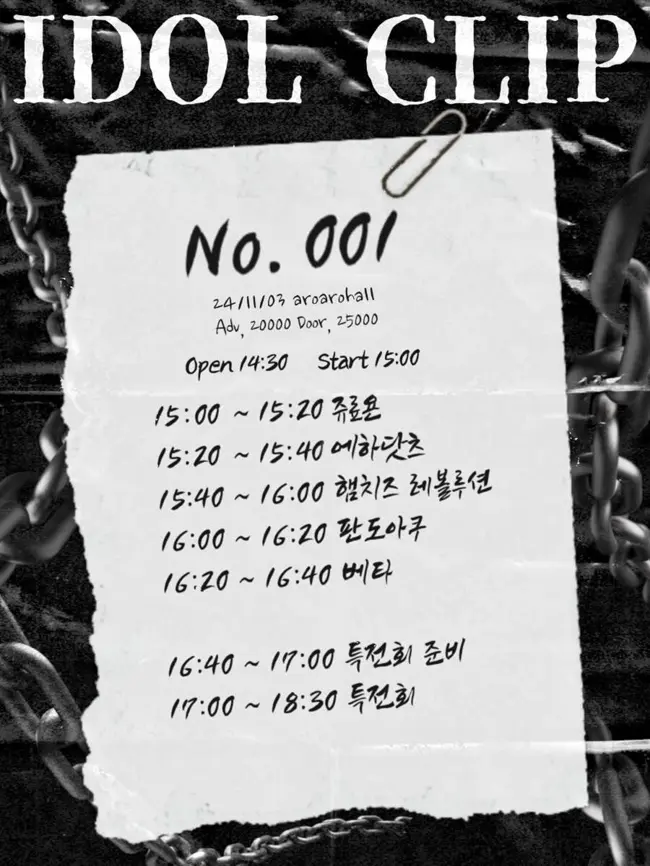 IDOL CLIP
No. 001
24/11/03 aroarohall
Adv, 20000 Door, 25000
Open 14:30 Start 15:00
15:00 ~ 15:20 쥬료온
15:20 ~ 15:40 에하닷츠
15:40 ~ 16:00 햄치즈 레볼루션
16:00 ~ 16:20 판도아쿠
16:20 ~ 16:40 베타
16:40 ~ 17:00 특전회 준비
17:00 ~ 18:30 특전회